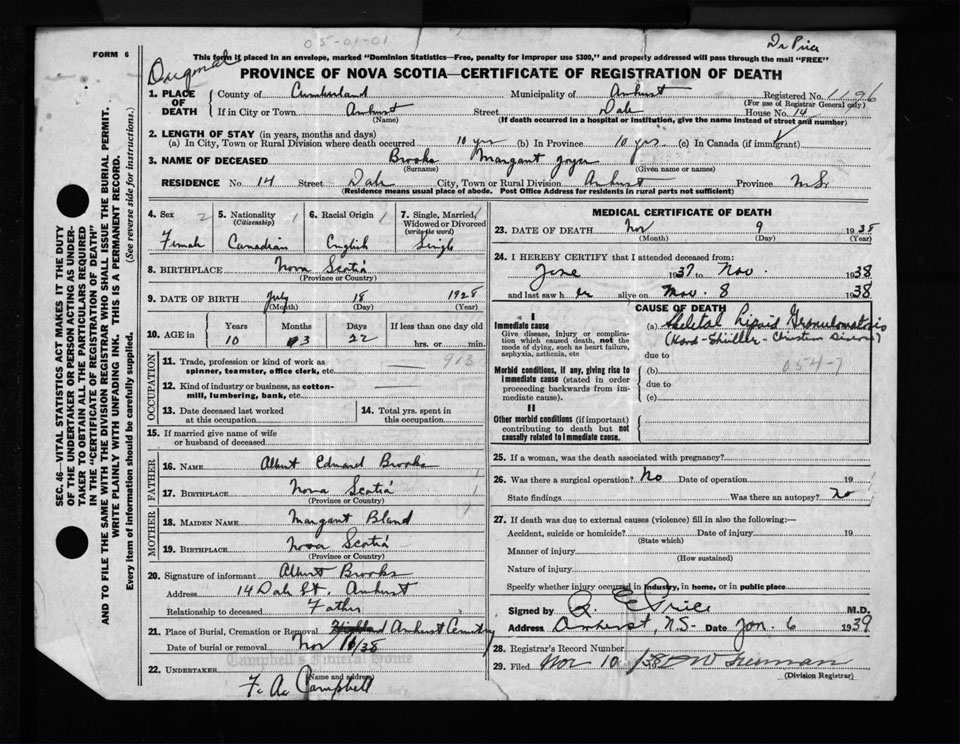 05-01-01
Dr Price
FORM 6
This form if placed in an envelope, marked "Dominion Statistics—Free, penalty for improper use $300," and properly addressed will pass through the mail "FREE"
Original
PROVINCE OF NOVA SCOTIA—CERTIFICATE OF REGISTRATION OF DEATH
1. PLACE OF DEATH
County of Cumberland Municipality of Amherst Registered No. 1196
(For use of Registrar General only)
If in City or Town Amherst Street Dale House No. 14
(Name) (If death occurred in a hospital or institution, give the name instead of street and number)
2. LENGTH OF STAY (in years, months and days)
(a) In City, Town or Rural Division where death occurred 10 yrs (b) In Province 10 yrs. (c) In Canada (if immigrant)
3. NAME OF DECEASED Brooks Margaret Joyce
(Surname) (Given name or names)
RESIDENCE No. 14 Street Dale City, Town or Rural Division Amherst Province N.S.
(Residence means usual place of abode. Post Office Address for residents in rural parts not sufficient)
4. Sex 2 Female
5. Nationality (Citizenship) 1 Canadian
6. Racial Origin 1 English
7. Single, Married, Widowed or Divorced (write the word) 1 Single
8. BIRTHPLACE Nova Scotia
(Province or Country)
9. DATE OF BIRTH July 18 1928
(Month) (Day) (Year)
10. AGE in Years Months Days If less than one day old
10 3 22 hrs. or min.
OCCUPATION
11. Trade, profession or kind of work as spinner, teamster, office clerk, etc. 913
12. Kind of industry or business, as cotton-mill, lumbering, bank, etc.
13. Date deceased last worked at this occupation
14. Total yrs. spent in this occupation
15. If married give name of wife or husband of deceased
FATHER
16. NAME Albert Edward Brooks
17. BIRTHPLACE Nova Scotia
(Province or Country)
MOTHER
18. MAIDEN NAME Margaret Bland
19. BIRTHPLACE Nova Scotia
(Province or Country)
20. Signature of informant Albert Brooks
Address 14 Dale St. Amherst
Relationship to deceased Father
21. Place of Burial, Cremation or Removal Highland Amherst Cemetery
Date of burial or removal Nov 10/38
Campbell's Funeral Home
22. UNDERTAKER
(Name and address)
F. A. Campbell
MEDICAL CERTIFICATE OF DEATH
23. DATE OF DEATH Nov 9 1938
(Month) (Day) (Year)
24. I HEREBY CERTIFY that I attended deceased from:
June 1937 to Nov. 1938
and last saw h er alive on Nov. 8 1938
CAUSE OF DEATH
I
Immediate cause
Give disease, injury or complication which caused death, not the mode of dying, such as heart failure, asphyxia, asthenia, etc
(a) Skeletal Lipoid Granulomatosis
(Hand-Shüller-Christian Disease)
due to
Morbid conditions, if any, giving rise to immediate cause (stated in order proceeding backwards from immediate cause).
(b) 054-7
due to
(c)
II
Other morbid conditions (if important) contributing to death but not causally related to immediate cause.
25. If a woman, was the death associated with pregnancy?
26. Was there a surgical operation? No Date of operation 19
State findings Was there an autopsy? No
27. If death was due to external causes (violence) fill in also the following:—
Accident, suicide or homicide? Date of injury 19
(State which)
Manner of injury
(How sustained)
Nature of injury
Specify whether injury occurred in industry, in home, or in public place
Signed by R. E. Price M.D.
Address Amherst, N.S. Date Jan. 6 1939
28. Registrar's Record Number
29. Filed Nov 10 1938
(Division Registrar)
SEC. 46—VITAL STATISTICS ACT MAKES IT THE DUTY OF THE UNDERTAKER OR PERSON ACTING AS UNDERTAKER TO OBTAIN ALL THE PARTICULARS REQUIRED IN THE "CERTIFICATE OF REGISTRATION OF DEATH" AND TO FILE THE SAME WITH THE DIVISION REGISTRAR WHO SHALL ISSUE THE BURIAL PERMIT.
WRITE PLAINLY WITH UNFADING INK. THIS IS A PERMANENT RECORD.
Every item of information should be carefully supplied. (See reverse side for instructions.)